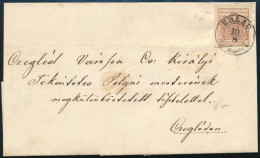 Czegléd Városa Cs: Királyi
Tekintetes Polgár mesterének
megkülönböztetett tisztelettel.
Czegléden